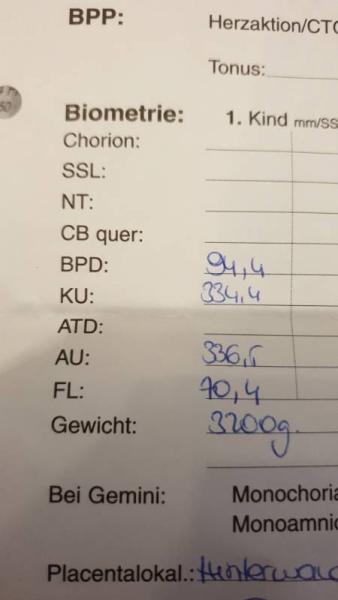 BPP: Herzaktion/CTG
Tonus:
Biometrie: 1. Kind mm/SS
Chorion:
SSL:
NT:
CB quer:
BPD: 94,4
KU: 334,4
ATD:
AU: 336,5
FL: 70,4
Gewicht: 3200g.
Bei Gemini: Monochoria
Monoamnio
Placentalokal.: Hinterwand